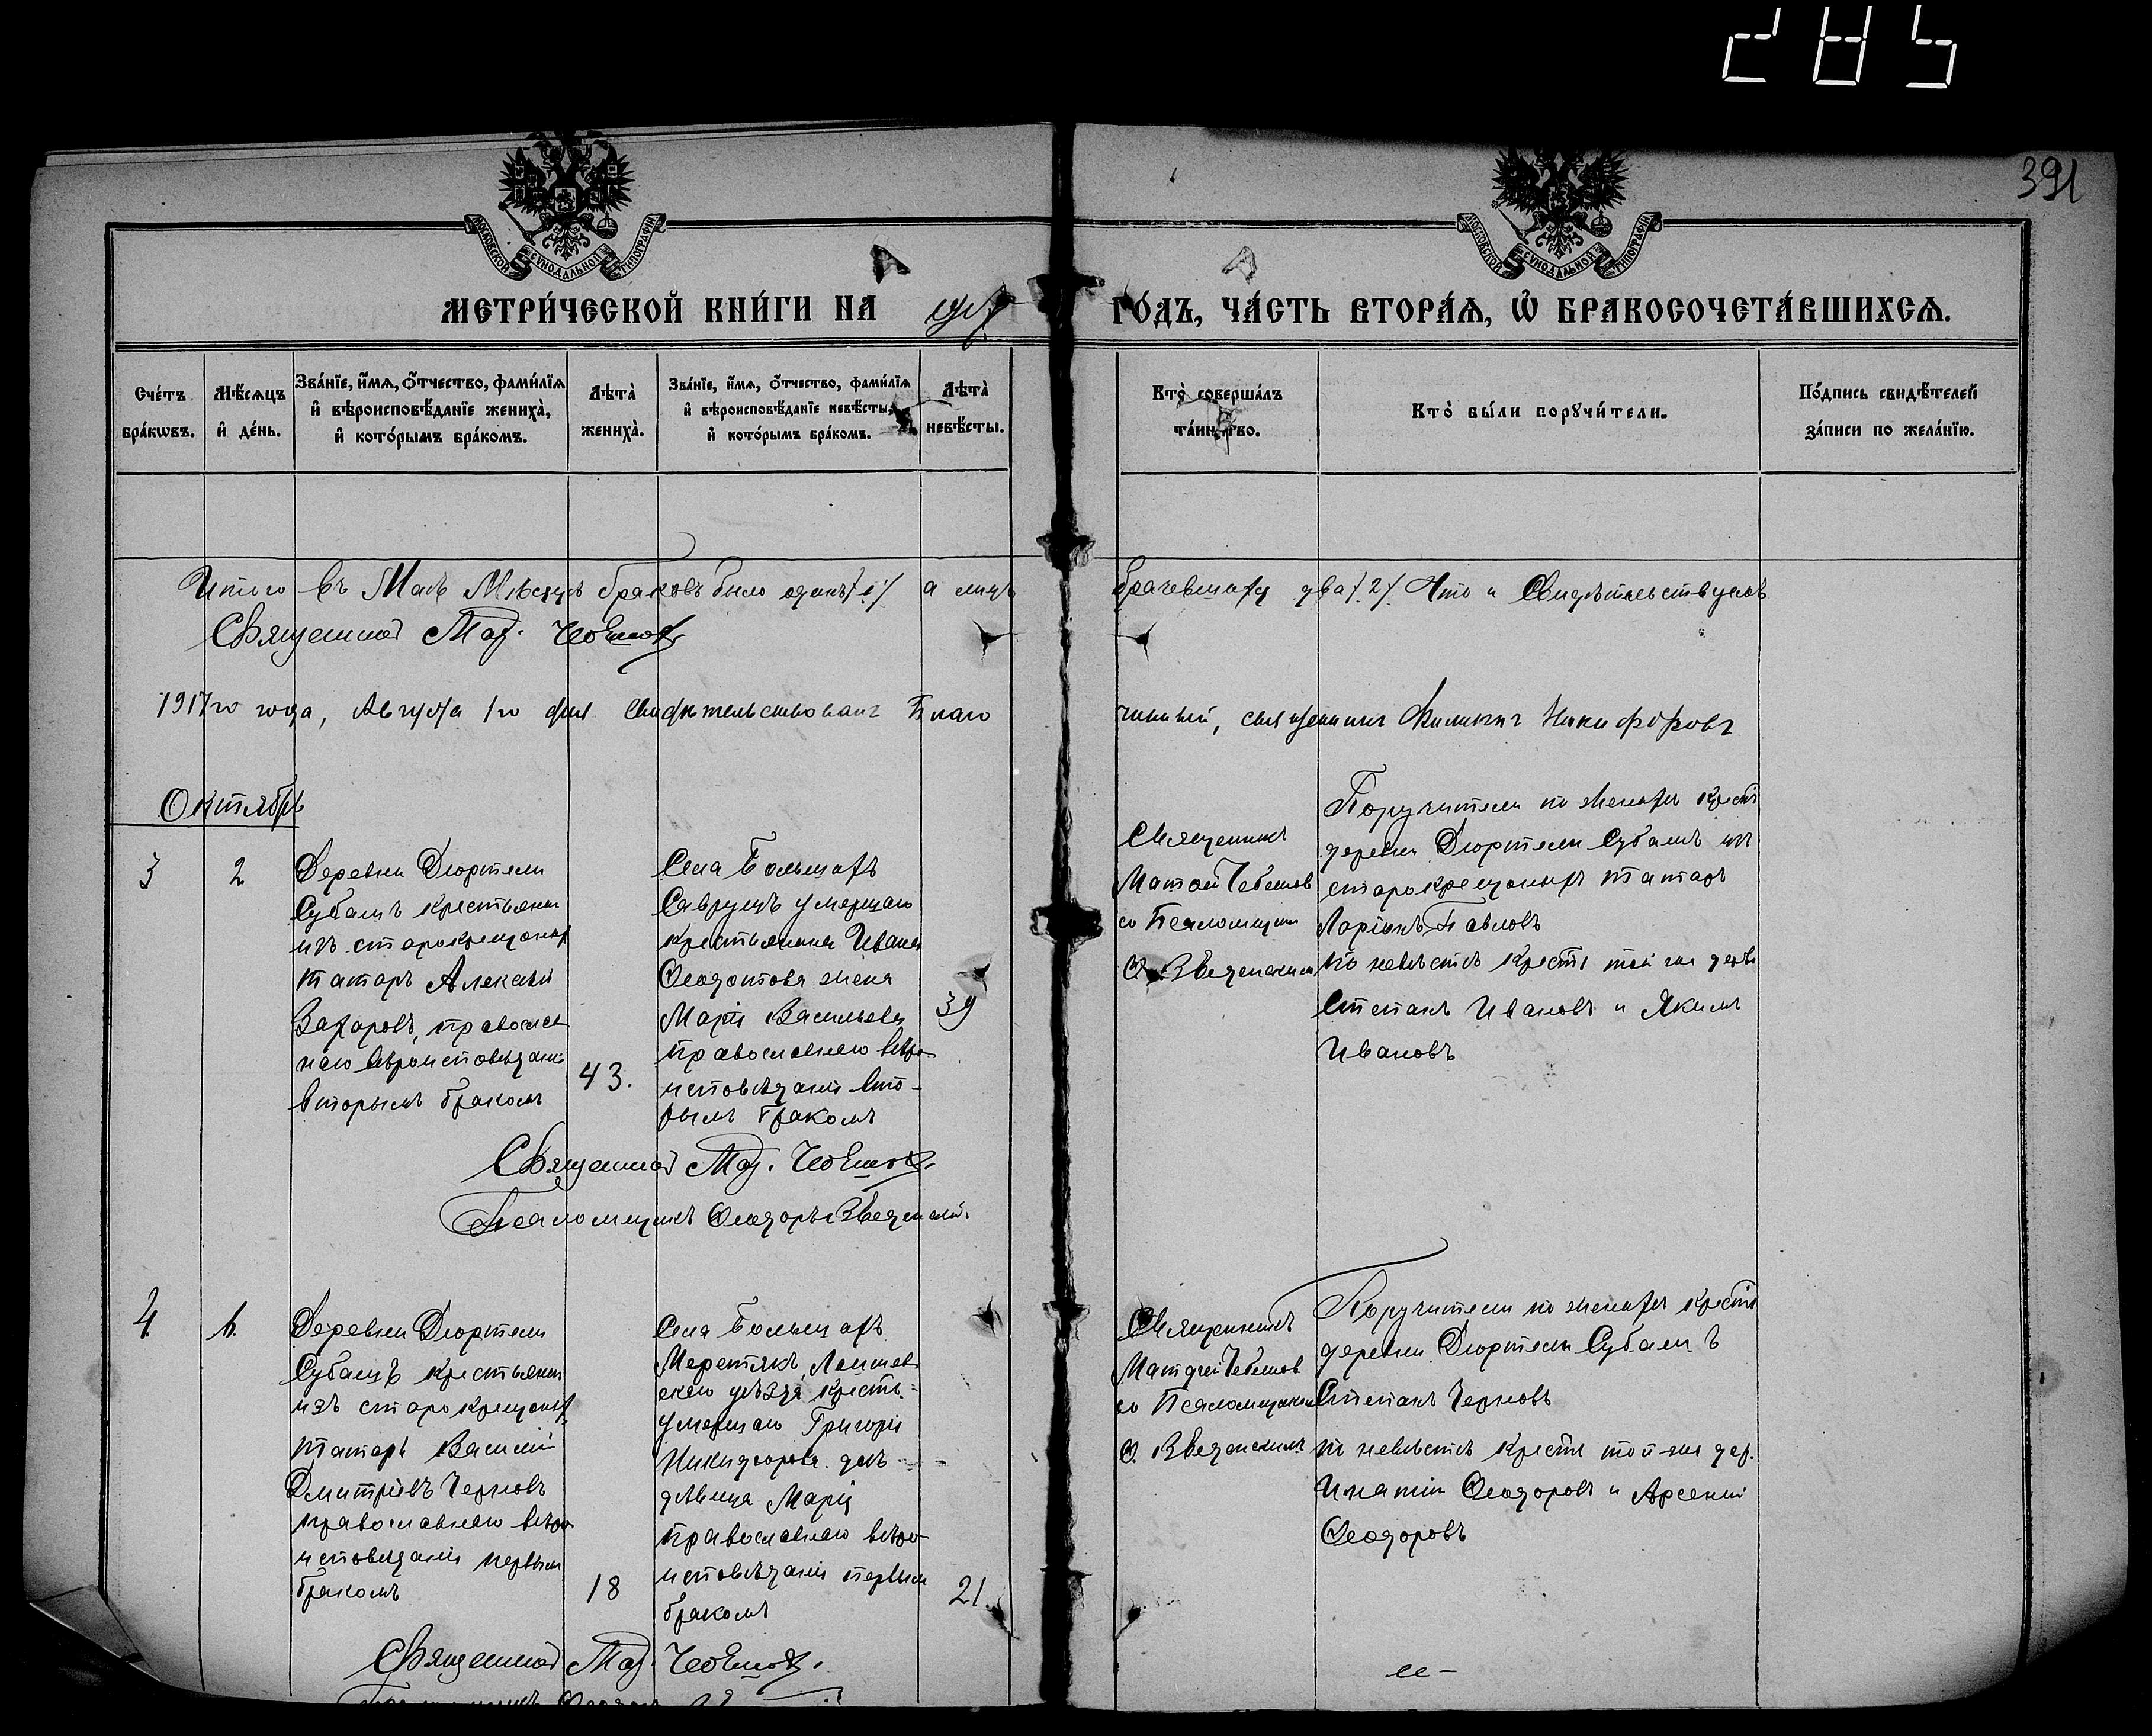 285
391
МОСКОВСКОЙ СѴНОДАЛЬНОЙ ТИПОГРАФІИ
МОСКОВСКОЙ СѴНОДАЛЬНОЙ ТИПОГРАФІИ
МЕТРИ́ЧЕСКОЙ КНИ́ГИ НА 1917 ГО́ДЪ, ЧА́СТЬ ВТОРА́Ѧ, Ѿ БРАКОСОЧЕТА́ВШИХСѦ.
Сче́тъ бра́кѡвъ.
Мѣ́сѧцъ и҆ де́нь.
Зва́нїе, и҆́мѧ, ѻ҆́тчество, фами́лїѧ
и҆ вѣроисповѣ́данїе жениха̀,
и҆ кото́рымъ бра́комъ.
Лѣта̀ жениха̀.
Зва́нїе, и҆́мѧ, ѻ҆́тчество, фами́лїѧ
и҆ вѣроисповѣ́данїе невѣ́сты,
и҆ кото́рымъ бра́комъ.
Лѣта̀ невѣ́сты.
Кто̀ соверша́лъ
та́инство.
Кто̀ бы́ли порꙋчи́тели.
По́дпись свидѣ́телей
за́писи по жела́нїю.
Итого въ Маѣ Мѣсяцѣ браковъ было одинъ /1/ а лицъ брачевшихся два /2/ Что и Свидѣтельствуемъ
Священникъ Мат. Чебышов
1917го года, Августа 1го дня свидѣтельствовалъ Благочинный, священникъ Филиппъ Никифоровъ
Октябрь
3
2
Деревни Дюртели
Субашъ крестьянин
изъ старокрещоных
татаръ Алексѣй
Захаровъ, православ
наго вѣроисповѣданія
вторымъ бракомъ
43.
Села Большихъ
Саврушъ умершаго
крестьянина Ивана
Ѳеодотова жена
Марія Васильева
православнаго вѣро-
исповѣданія вто-
рымъ бракомъ
39
Священникъ
Матѳей Чебышов
со Псаломщик
Ѳ. Введенскимъ
Поручители по женихѣ крест.
деревни Дюртели Субашъ изъ
старокрещоныхъ татаръ
Ларіонъ Павловъ
по невѣстѣ крест. той же дерев.
Степанъ Ивановъ и Якимъ
Ивановъ
Священникъ Мат. Чебышов.
Псаломщикъ Ѳеодоръ Введенскій.
4
6.
Деревни Дюртели
Субашъ крестьянин
изъ старокрещоных
татаръ Василій
Дмитріевъ Черновъ
православнаго вѣро
исповѣданія первым
бракомъ
18
Села Большихъ
Меретякъ, Лаишев
скаго уѣзда крестъ.
умершаго Григорія
Никифорова дочь
дѣвица Марія
православнаго вѣро
исповѣданія первым
бракомъ
21
Священникъ
Матѳей Чебышов
со Псаломщиком
Ѳ. Введенскимъ
Поручители по женихѣ крест.
деревни Дюртели Субашъ
Степанъ Черновъ
по невѣстѣ крест. той-же дер.
Игнатій Ѳеодоровъ и Арсеній
Ѳеодоровъ
Священникъ Мат. Чебышов.